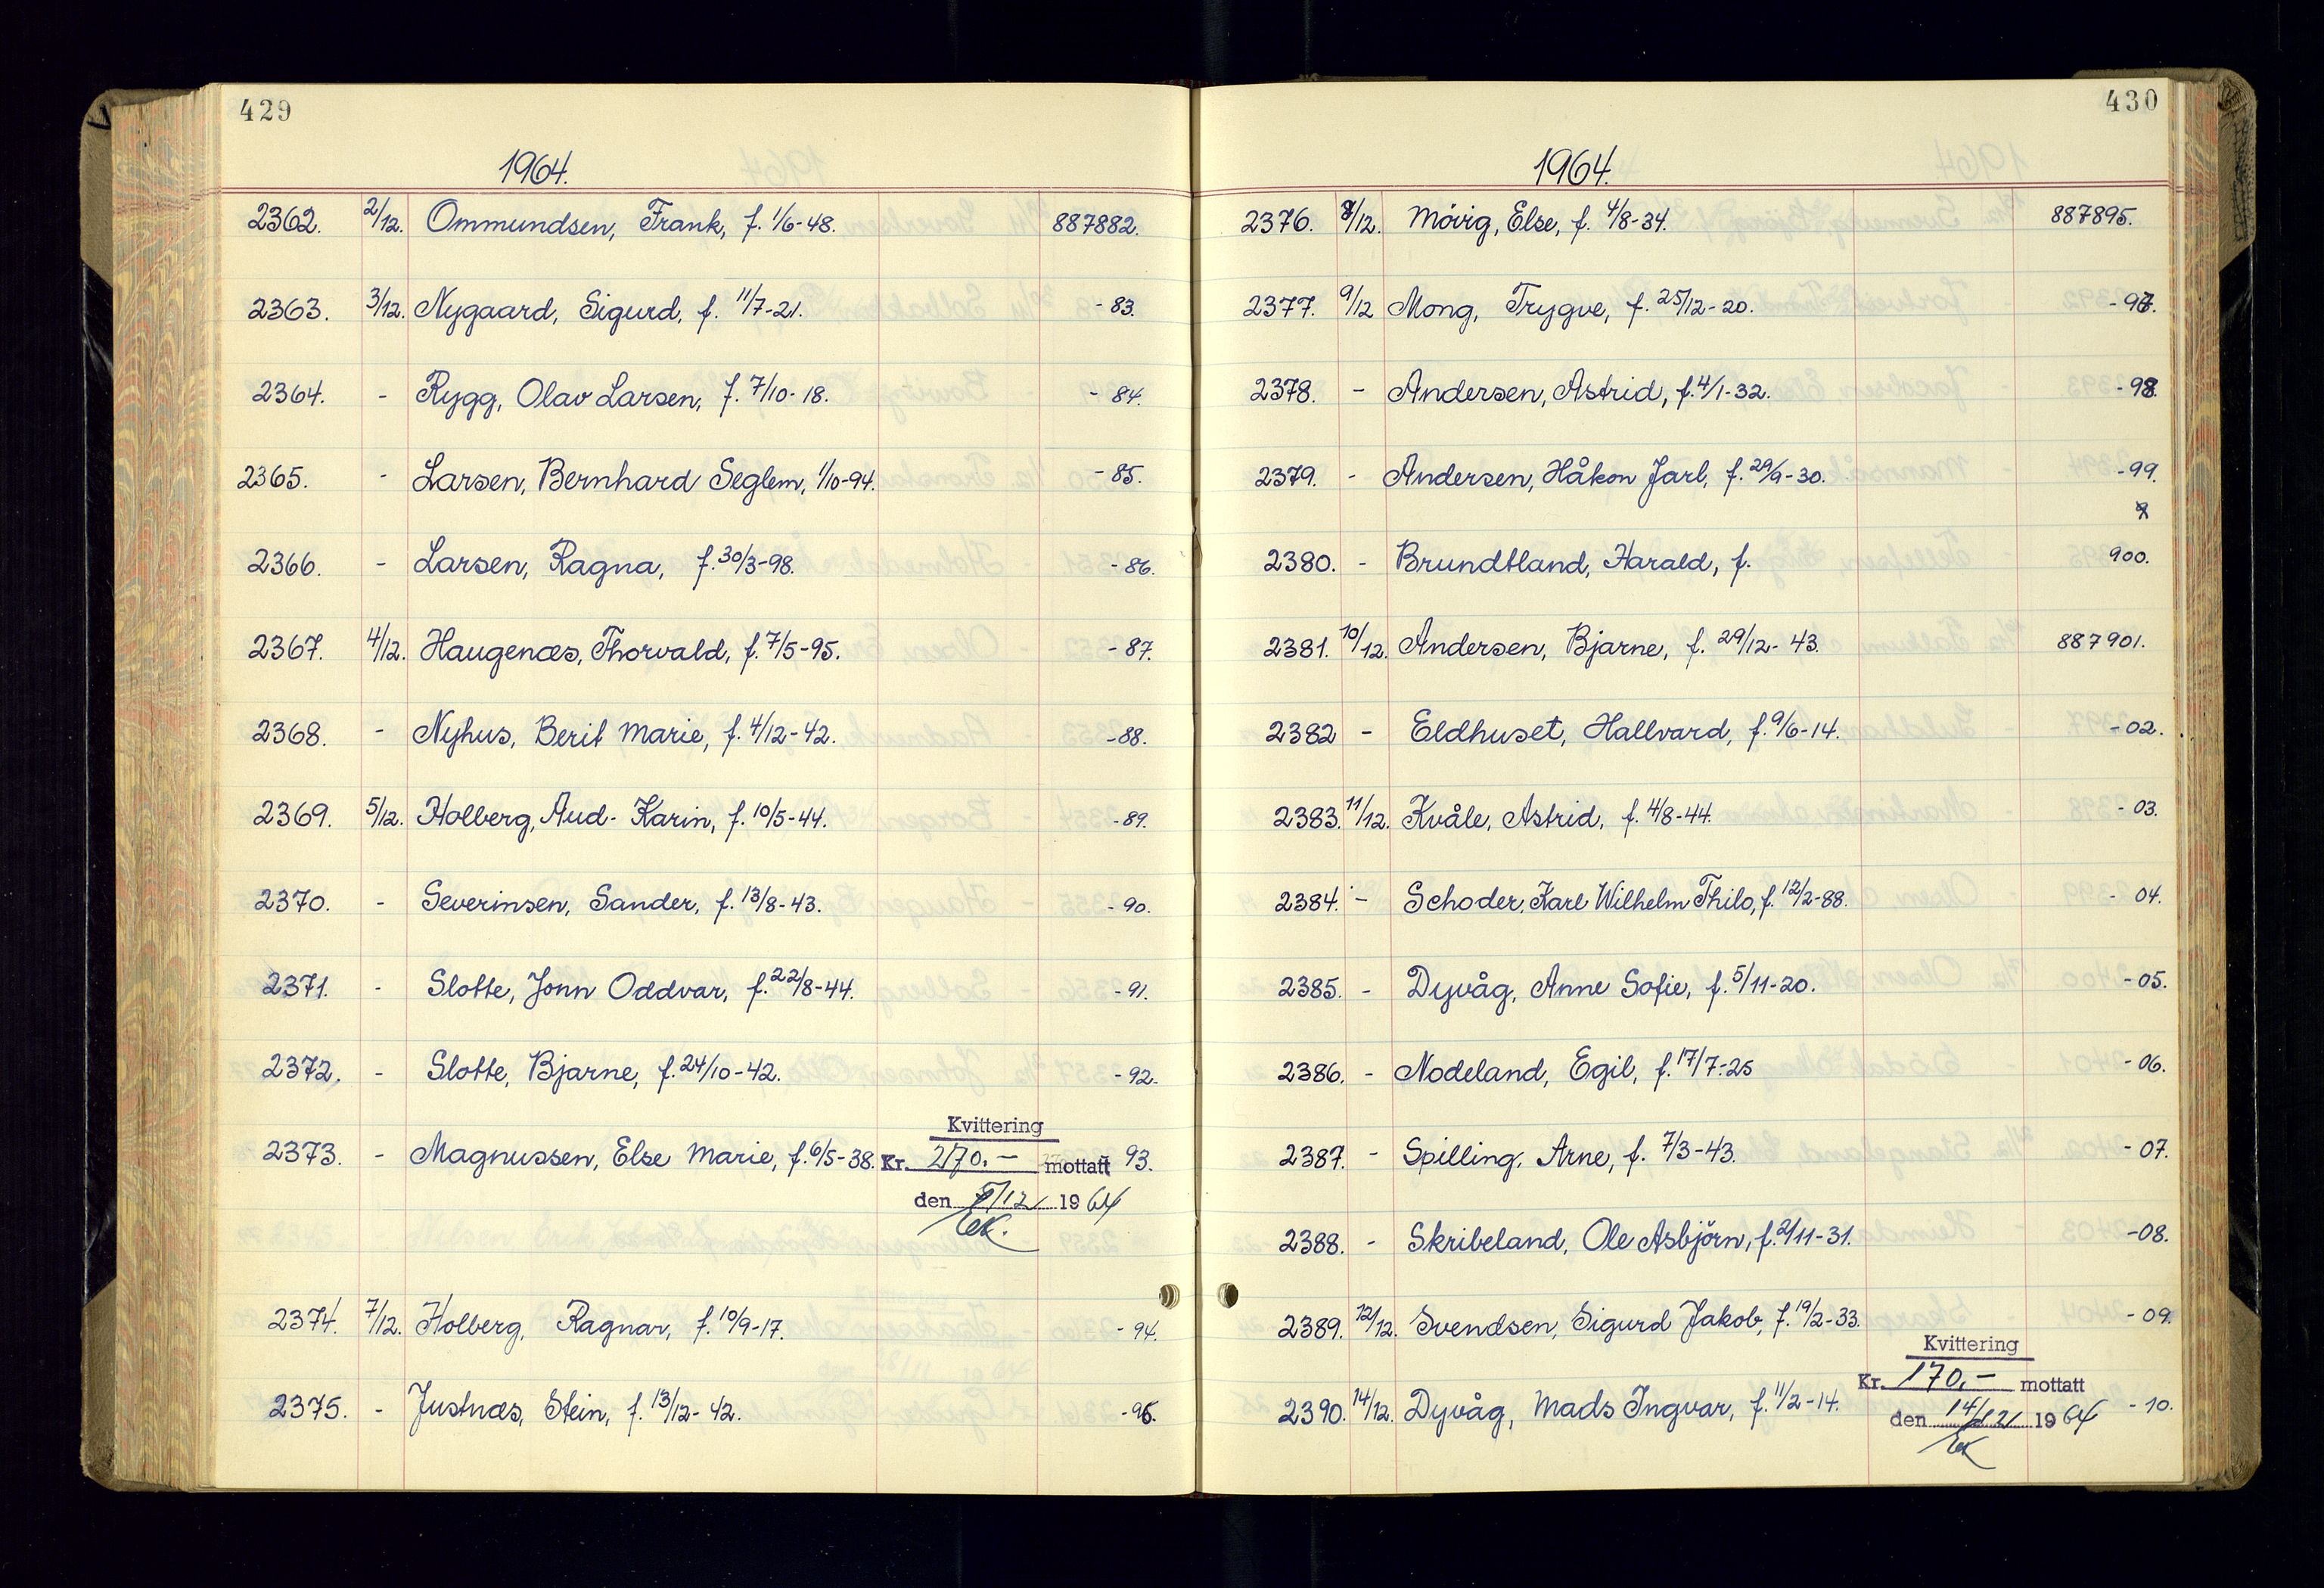 429
1964.
2362. 2/12. Ommundsen, Frank, f. 1/6-48. 887882.
2363. 3/12. Nygaard, Sigurd, f. 11/7-21. - 83.
2364. - Rygg, Olav Larsen, f. 7/10-18. - 84.
2365. - Larsen, Bernhard Seglem, 1/10-94. - 85.
2366. - Larsen, Ragna, f. 30/3-98. - 86.
2367. 4/12. Haugenæs, Thorvald, f. 7/5-95. - 87.
2368. - Nyhus, Berit Marie, f. 4/12-42. -88.
2369. 5/12. Holberg, Aud-Karin, f. 10/5-44. - 89.
2370. - Severinsen, Sander, f. 13/8-43. - 90.
2371. - Slotte, Jonn Oddvar, f. 22/8-44. - 91.
2372. - Slotte, Bjarne, f. 24/10-42. - 92.
Kvittering
2373. - Magnussen, Else Marie, f. 6/5-38. Kr. 270.- mottatt 93.
den 5/12 1964
EK.
2374. 7/12. Holberg, Ragnar, f. 10/9-17. - 94.
2375. - Justnæs, Stein, f. 13/12-42. -
430
1964.
2376. /12. Mövig, Else, f. 4/8-34. 887895.
2377. 9/12 Mong, Trygve, f. 25/12-20. - 97.
2378. - Andersen, Astrid, f. 4/1-32. - 98.
2379. - Andersen, Håkon Jarl, f. 29/9-30. - 99.
2380. - Brundtland, Harald, f. 900.
2381. 10/12. Andersen, Bjarne, f. 29/12-43. 887901.
2382 - Eldhuset, Hallvard, f. 9/6-14. - 02.
2383. 11/12. Kvåle, Astrid, f. 4/8-44. - 03.
2384. - Schoder, Karl Wilhelm Thilo, f. 12/2-88. - 04.
2385. - Dyvåg, Anne Sofie, f. 5/11-20. - 05.
2386. - Nodeland, Egil, f. 17/7-25 - 06.
2387. - Spilling, Arne, f. 7/3-43. - 07.
2388. - Skribeland, Ole Asbjörn, f. 2/11-31. -08.
2389. 12/12. Svendsen, Sigurd Jakob, f. 19/2-33. - 09.
Kvittering
Kr. 170.- mottatt
2390. 14/12. Dyvåg, Mads Ingvar, f. 11/2-14. den 14/12 1964 - 10.
EK